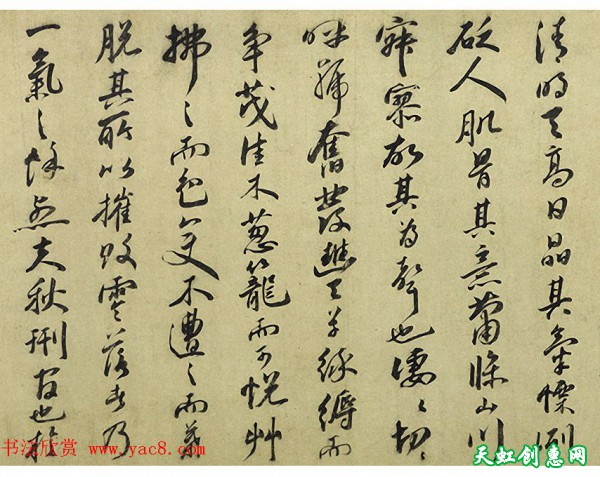 清明天高日晶其氣慄冽
砭人肌骨其意蕭條山川
寂寥故其為聲也淒〻切〻
呼號奮發豐草綠縟而
爭茂佳木葱籠而可悅艸
拂之而色變木遭之而葉
脫其所以摧敗零落者乃
一氣之餘烈夫秋刑官也於
书法欣赏 www.yac8.com
天虹创惠网